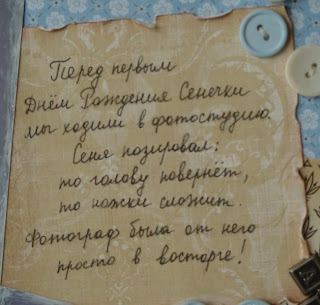 Перед первым
Днём Рождения Сенечки
мы ходили в фотостудию.
Сеня позировал:
то голову повернёт,
то ножки сложит.
Фотограф была от него
просто в восторге!